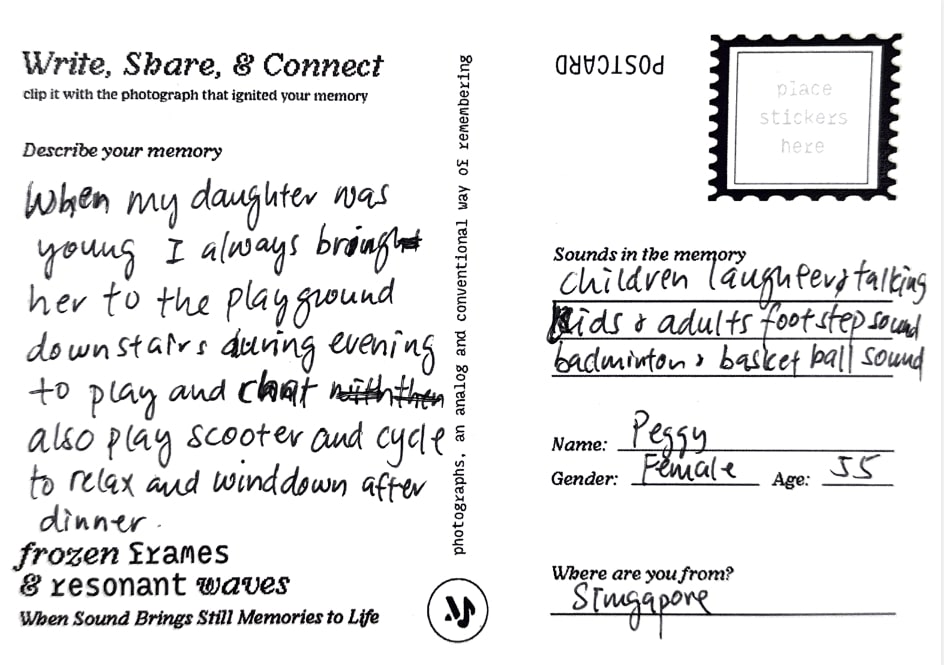 Write, Share, & Connect
clip it with the photograph that ignited your memory
Describe your memory
When my daughter was
young I always bring
her to the playground
downstairs during evening
to play and chat
also play scooter and cycle
to relax and winddown after
dinner.
frozen frames
& resonant waves
When Sound Brings Still Memories to Life
photographs, an analog and conventional way of remembering
POSTCARD
place
stickers
here
Sounds in the memory
Children laughter & talking
Kids & adults footstep sound
badminton & basket ball sound
Name: Peggy
Gender: Female Age: 55
Where are you from?
Singapore